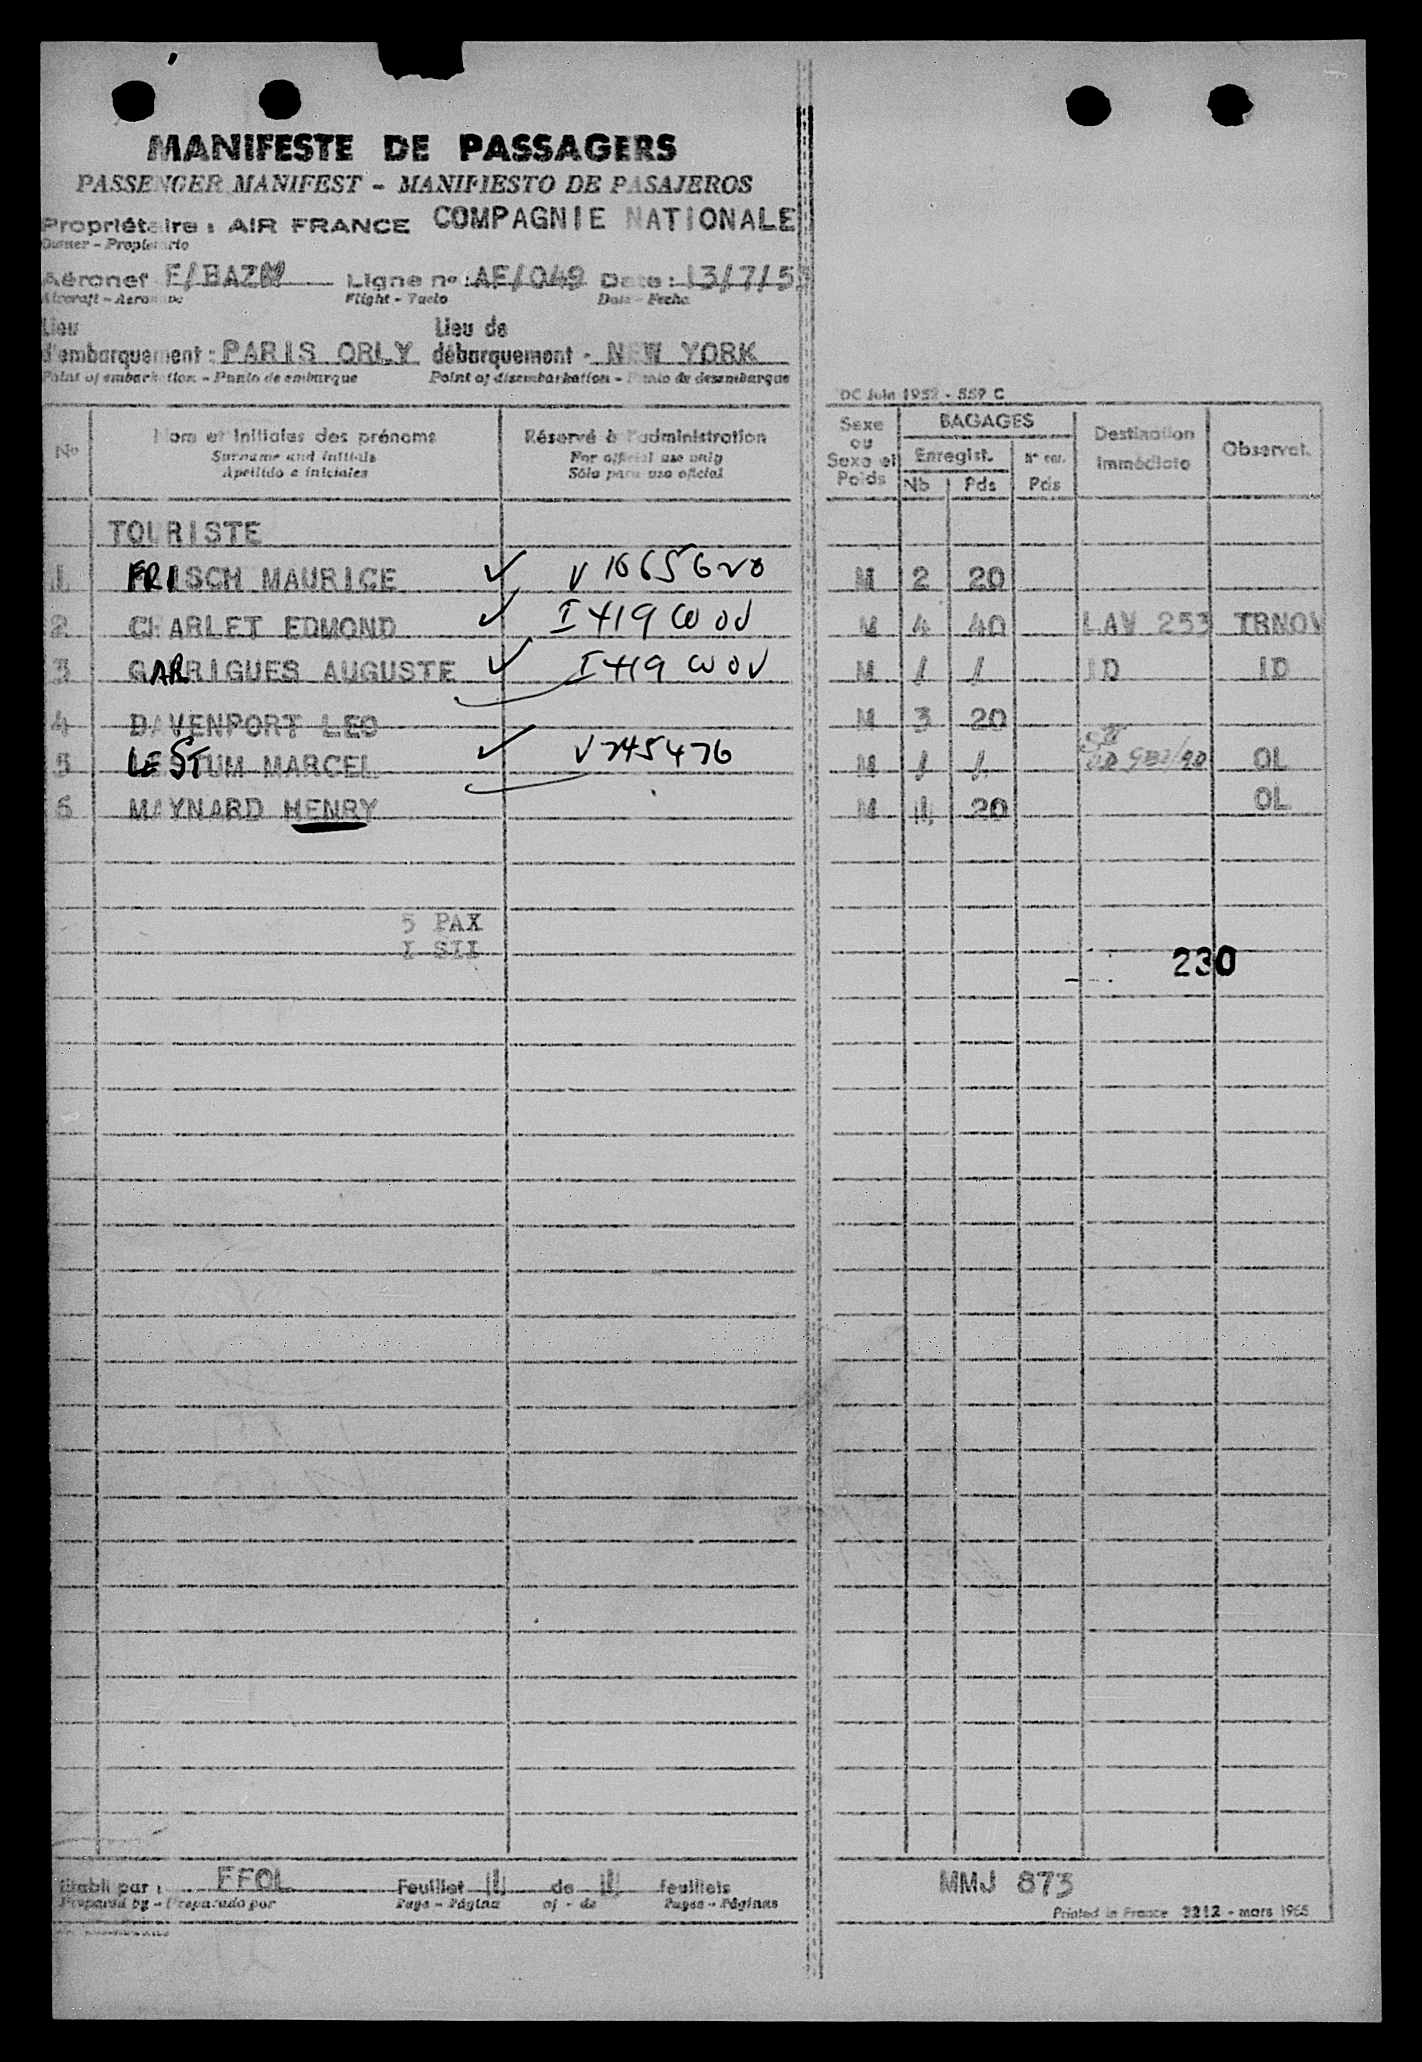 MANIFESTE DE PASSAGERS
PASSENGER MANIFEST - MANIFIESTO DE PASAJEROS
Propriétaire : AIR FRANCE COMPAGNIE NATIONALE
Owner - Propietario
Aéronef F/BAZM Ligne nº : AF/049 Date : 13/7/55
Aircraft - Aeronave Flight - Vuelo Date - Fecha
Lieu Lieu de
d'embarquement : PARIS ORLY débarquement - NEW YORK
Point of embarkation - Punto de embarque Point of disembarkation - Punto de desembarque
DC Juin 1952 - 559 C
Nº Nom et initiales des prénoms Réservé à l'administration Sexe ou Sexe et Poids BAGAGES Destination immédiate Observat.
Surname and initials For official use only Enregist.
Apellido e iniciales Sólo para uso oficial Nb Pds Pds
TOURISTE
1 FRISCH MAURICE ✓ V 1665620 M 2 20
2 CHARLET EDMOND ✓ I 419 M 4 40 LAV 253 TRNOV
3 GARRIGUES AUGUSTE ✓ I 419 M / / ID ID
4 DAVENPORT LEO M 3 20
5 LESTUM MARCEL ✓ V 745476 M / / OL
6 MAYNARD HENRY M 1 20 OL
5 PAX
I SII
230
Etabli par : FFOL Feuillet 1 de 1 feuillets MMJ 873
Prepared by - Preparado por Page - Página of - de Pages - Páginas
Printed in France 2212 - mars 1965